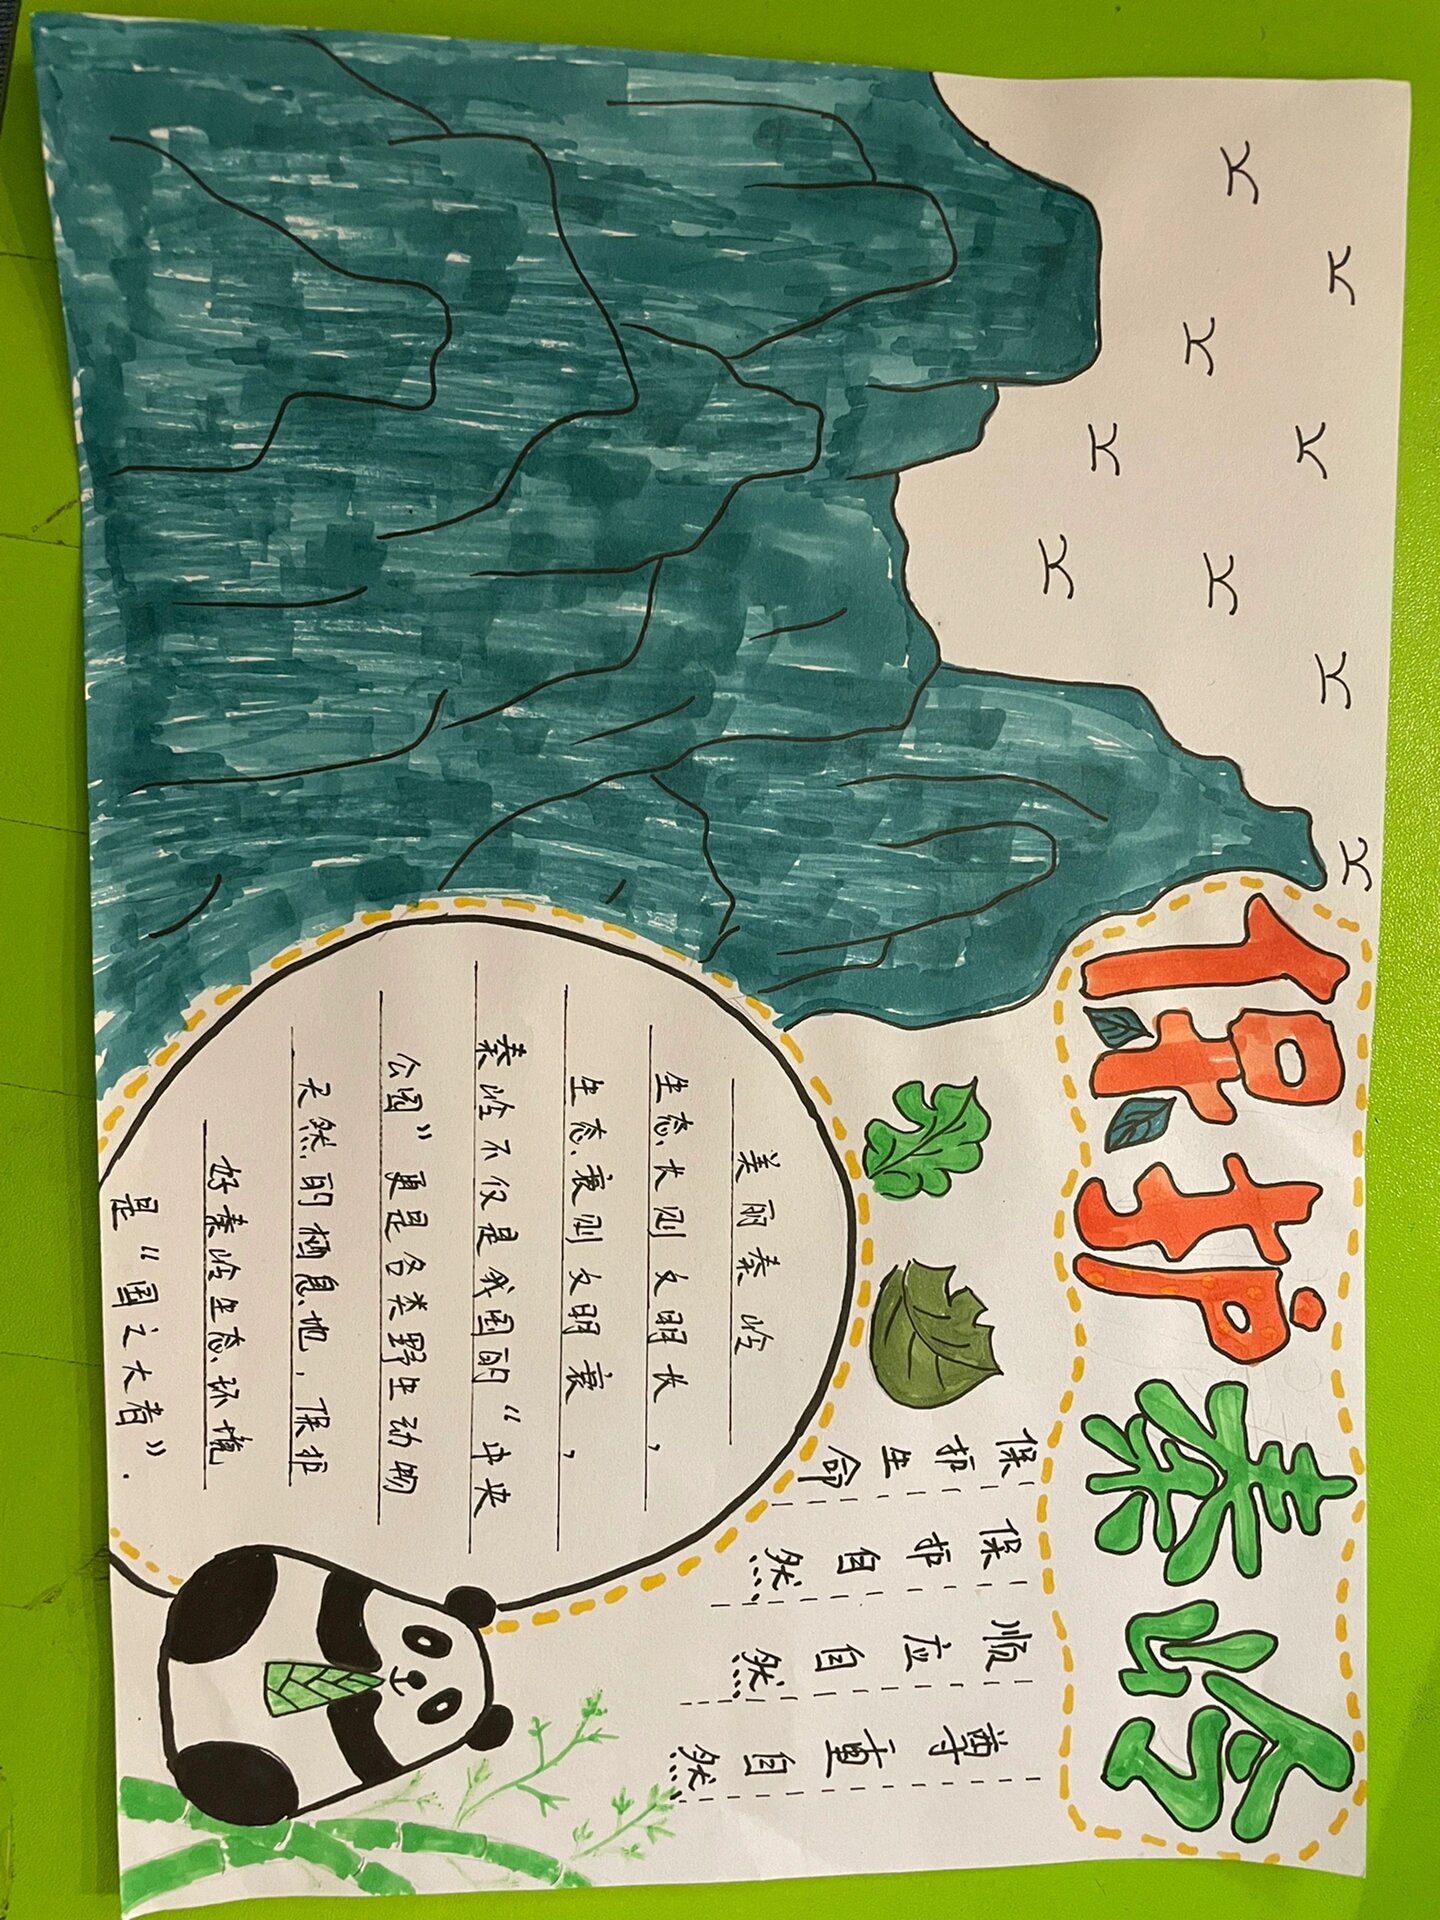 保护秦岭
美丽秦岭
生态长则文明长，
生态衰则文明衰，
秦岭不仅是我国的“中央
公园”更是各类野生动物
天然的栖息地，保护
好秦岭生态环境
是“国之大者”.
保护生命
保护自然
顺应自然
尊重自然